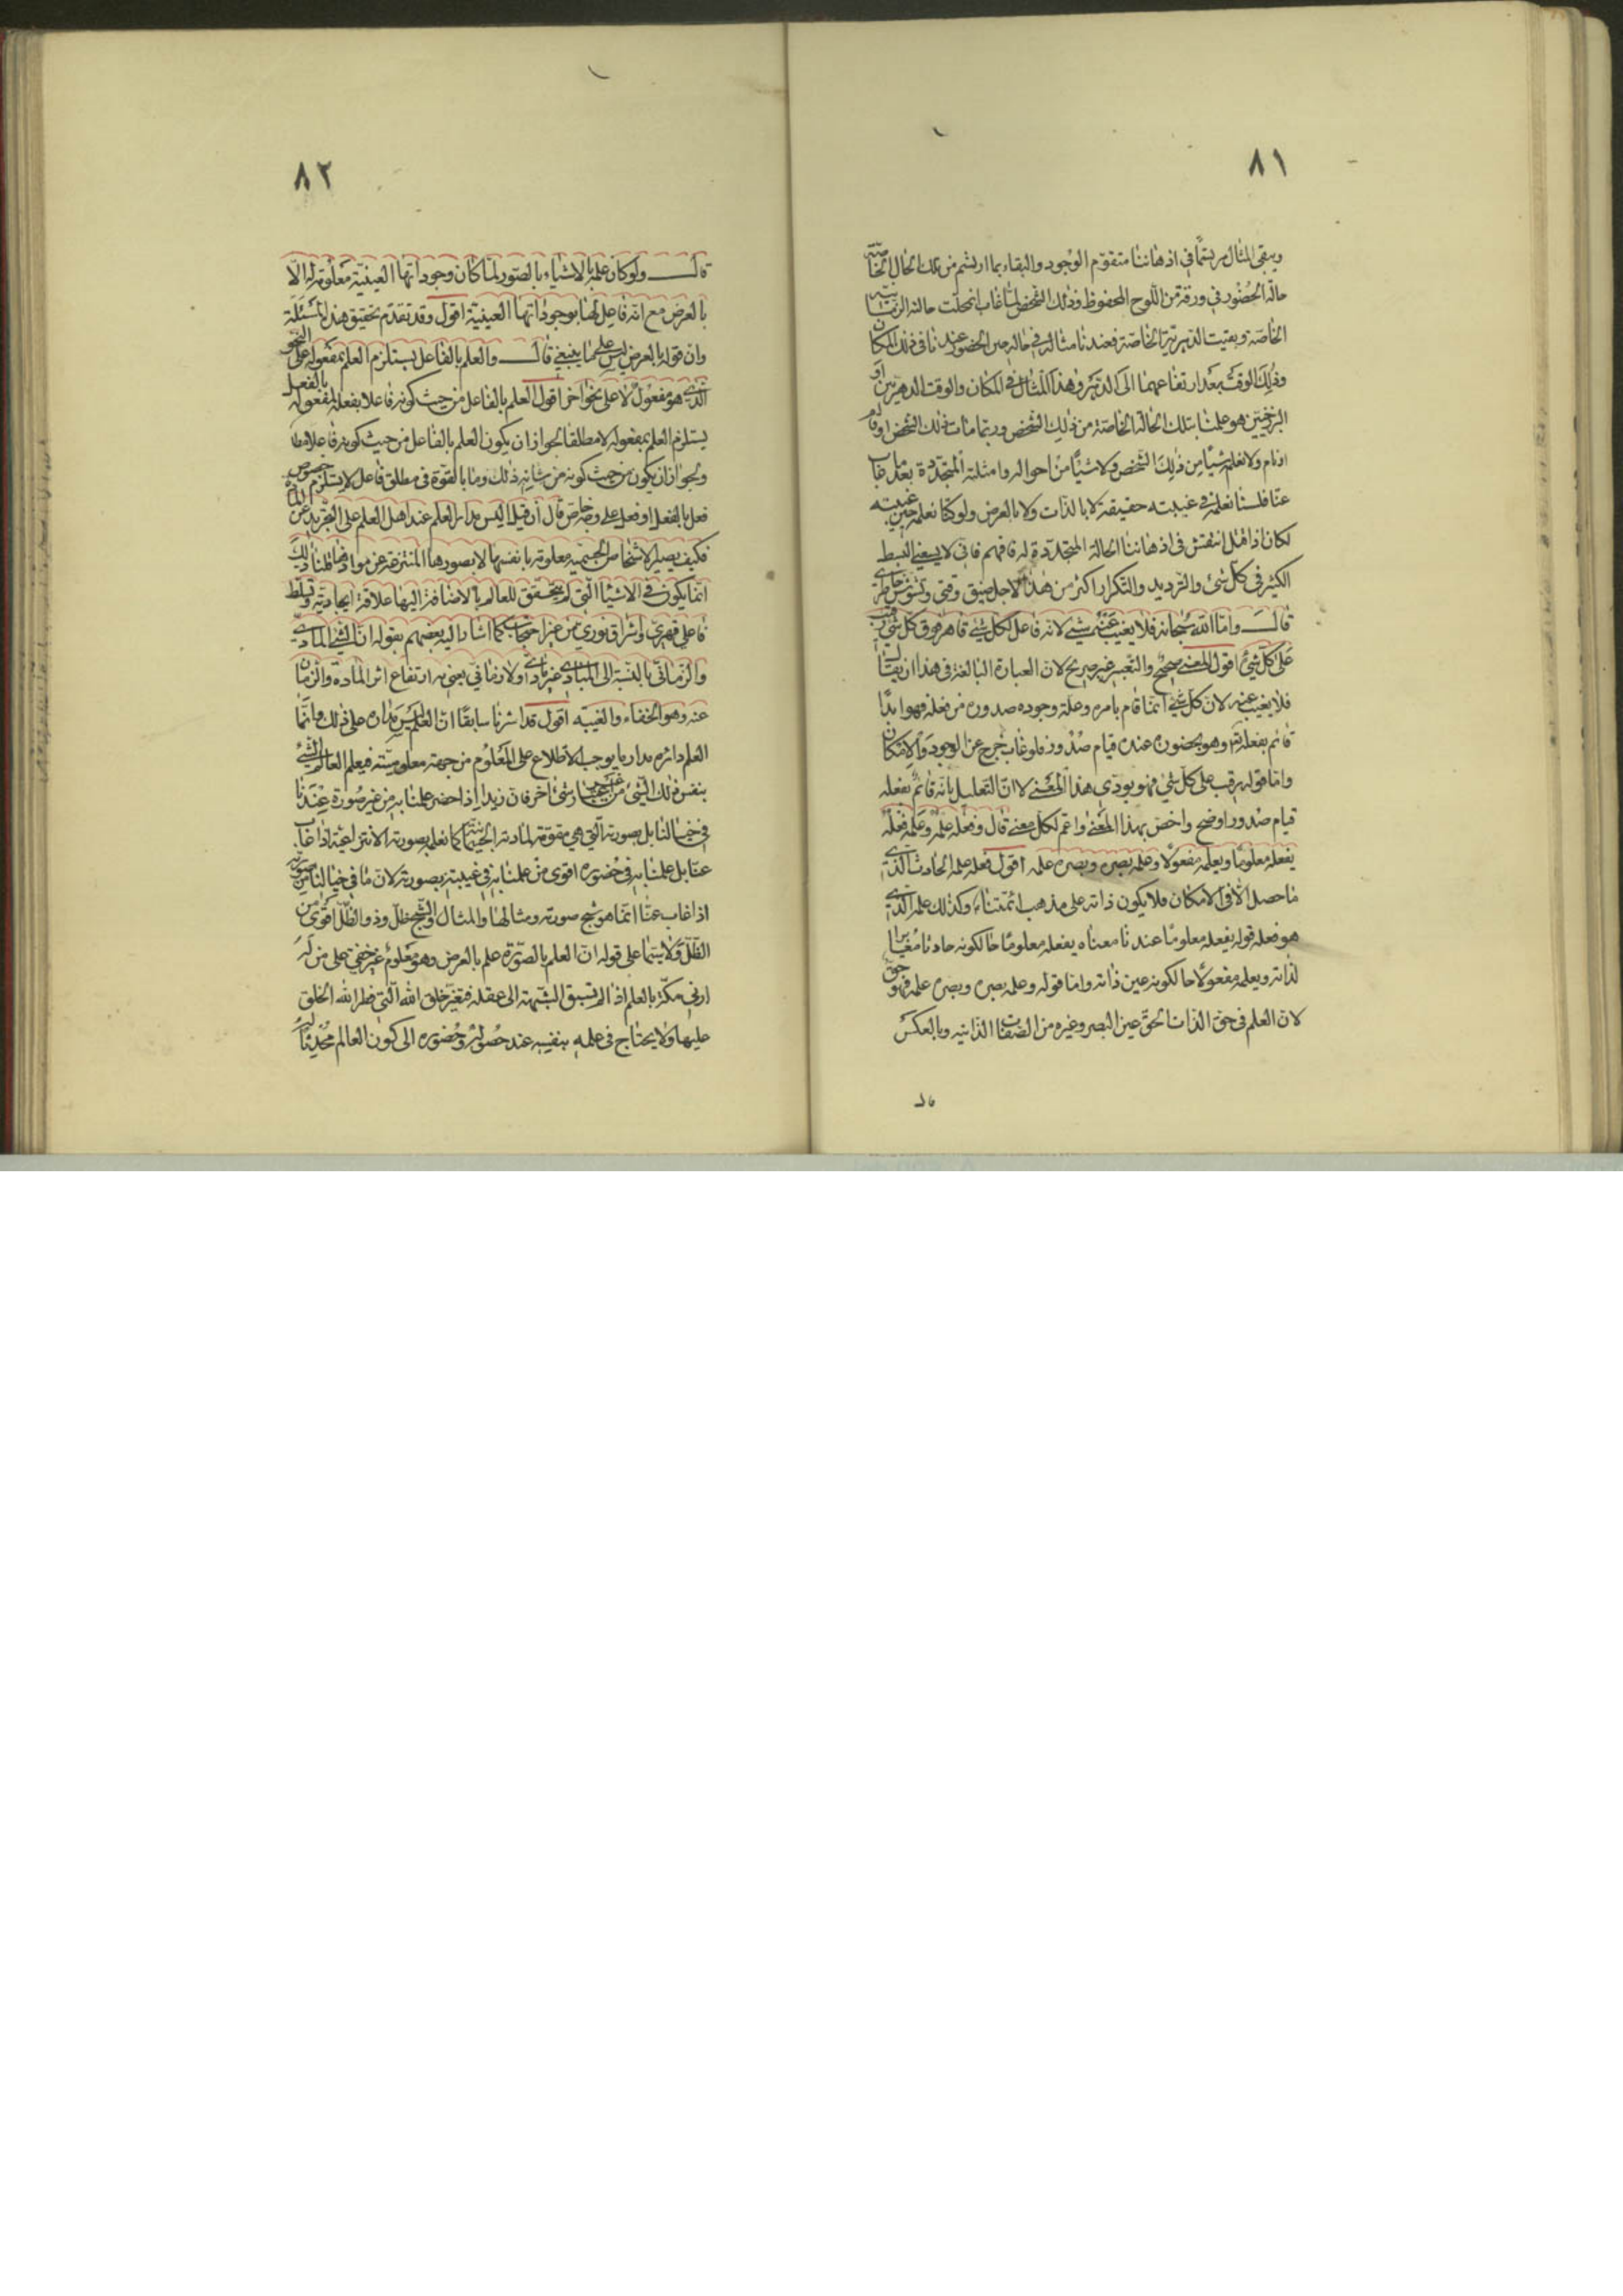 ٨١
ويبقى المثال مرتسمًا في اذهاننا متقوّم الوجود والبقاء بما ارتسم من تلك الحال الخاصّة
حالة الحضور في ورقة من اللّوح المحفوظ وذلك الشخص لمّا غاب انمحلت حالته الزمانيّة
الخاصّة وبقيت الدهريّة الخاصّة فعندنا مثاله في حاله حين الحضور عندنا في ذلك المكان
وذلك الوقت بعد ارتفاعهما الى الدهر وهذا المثال في المكان والوقت الدهريّين او
البرزخيّين هو علمنا بتلك الحالة الخاصّة من ذلك الشخص وربّما مات ذلك الشخص او قام
او نام ولا نعلم شيئًا من ذلك الشخص ولا شيئًا من احواله وامثلته المتجدّدة بعد ما غاب
عنّا فلسنا نعلمه في غيبته حقيقة لا بالذات ولا بالعرض ولو كنّا نعلمه حين غيبته
لكان اذا انتقش في اذهاننا الحالة المتجدّدة له فافهم فانّي لا يسعني البسط
الكثير في كل شئ والترديد والتكرار اكثر من هذا لاجل ضيق وقتي وتشوّش خاطري
قال وامّا الله سبحانه فلا يغيب عنه شئ لانه فاعل لكل شئ قاهر فوق كل شئ رقيب
على كل شئ اقول المعنى صحيح والتعبير غير صريح لان العبارة البالغة في هذا ان يقال
فلا يغيب عنه لان كل شئ انّما قام بامره وعلّة وجوده صدوره من فعله فهو ابدًا
قائم بفعله وهو بحضوره عنده قيام صدور فلو غاب خرج عن الوجود والامكان
وامّا قوله رقيب على كل شئ فهو يودّي هذا المعنى لا انّ التعليل بانه قائم بفعله
قيام صدور اوضح واخصّ بهذا المعنى واعمّ لكل معنى قال وفعله علمه وعلمه فعله
يفعله معلومًا ويعلمه مفعولًا وعلمه بصره وبصره علمه اقول فعله علمه الحادث الّذي
ما حصل الّا في الامكان فلا يكون ذاته على مذهب ائمّتنا وكذلك علمه الّذي
هو فعله قوله يفعله معلومًا عندنا معناه يفعله معلومًا حالكونه حادثا مغايرا
لذاته ويعلمه مفعولًا حالكونه عين ذاته وامّا قوله وعلمه بصره وبصره علمه فهو حق
لان العلم في حق الذات الحقّ عين البصر وغيره من الصّفات الذاتيه وبالعكس
قال
٨٢
قال ولو كان علمه بالاشياء بالصّور لما كان وجوداتها العينيّة معلومة له الّا
بالعرض مع انّه فاعل لها بوجوداتها العينية اقول وقد تقدّم تحقيق هذه المسئلة
وان قوله بالعرض ليس على ما ينبغي قال والعلم بالفاعل يستلزم العلم بمفعوله على النحو
الّذي هو مفعول لا على نحو اخر اقول العلم بالفاعل من حيث كونه فاعلا بفعله لمفعوله بالفعل
يستلزم العلم بمفعوله لا مطلقا لجواز ان يكون العلم بالفاعل من حيث كونه فاعلا مطلقا
ولجواز ان يكون من حيث كونه من شانه ذلك وما بالقوّة في مطلق فاعل لا يستلزم خصوص
فعل بالفعل او فعل على وجه خاصّ قال ان قيل اليس مدار العلم عند اهل العلم على التجريد عن المادّة
فكيف يصير الاشخاص الجسميّة معلومة بانفسها لا بصورها المنتزعة عن موادها قلنا ذلك
انّما يكون في الاشياء الّتي لم يتحقق للعالم بالاضافة اليها علاقة ايجاديّة وتسلّط
فاعليّ قهريّ واشراق نوريّ من غير احتجاب كما اشار اليه بعضهم بقوله انّ الشئ المادي
والزمانيّ بالنّسبة الى المبادي غير مادّي ولا زماني يعني به ارتفاع اثر المادّة والزمان
عنه وهو الخفاء والغيبة اقول قد اشرنا سابقًا انّ العلم ليس مداره على ذلك وانّما
العلم دائره مدار ما يوجب الاطلاع على المعلوم من جهة معلوميّته فيعلم العالم الشئ
بنفس ذلك الشئ من غير شئ اخر فانّ زيدا اذا حضر علمنا به من غير صورة عندنا
في خيالنا بل بصورته الّتي هي مقوّمة لمادته الجسمانيّة كما نعلم بصورته الانتزاعيّة اذا غاب
عنّا بل علمنا به في حضوره اقوى من علمنا به في غيبته بصورته لان ما في خيالنا من صورته
اذا غاب عنّا انّما هو شبح صورته ومثالها والمثال والشبح ظلّ وذو الظّلّ اقوى من
الظّلّ ولا سيّما على قوله انّ العلم بالصّورة علم بالعرض وهو معلوم غير خفيّ على من له
ادنى مكنة بالعلم اذا لم تسبق الشّبهة الى عقله فتغيّر خلق الله الّتي فطر الله الخلق
عليها ولا يحتاج في علمه بنفسه عند حصوله وحضوره الى كون العالم محدثًا له